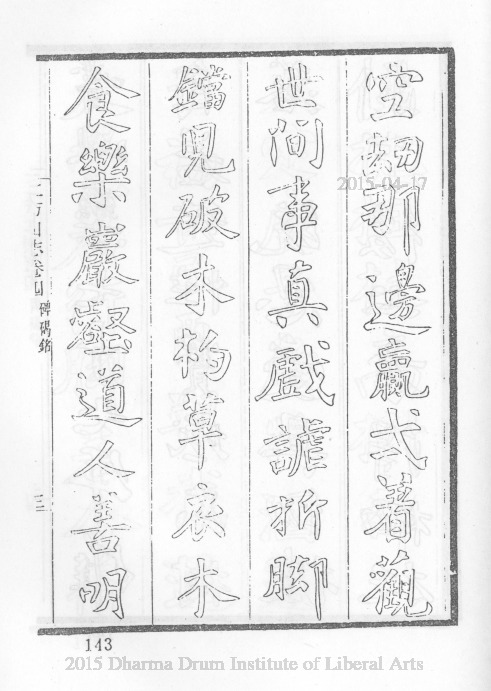 空刼那邊贏弌着觀
世间事真戲謔折脚
鐺兒破木杓草衣木
食樂巖壑道人善明
上方山志卷四 碑碣銘 三
143
2015-04-17
2015 Dharma Drum Institute of Liberal Arts